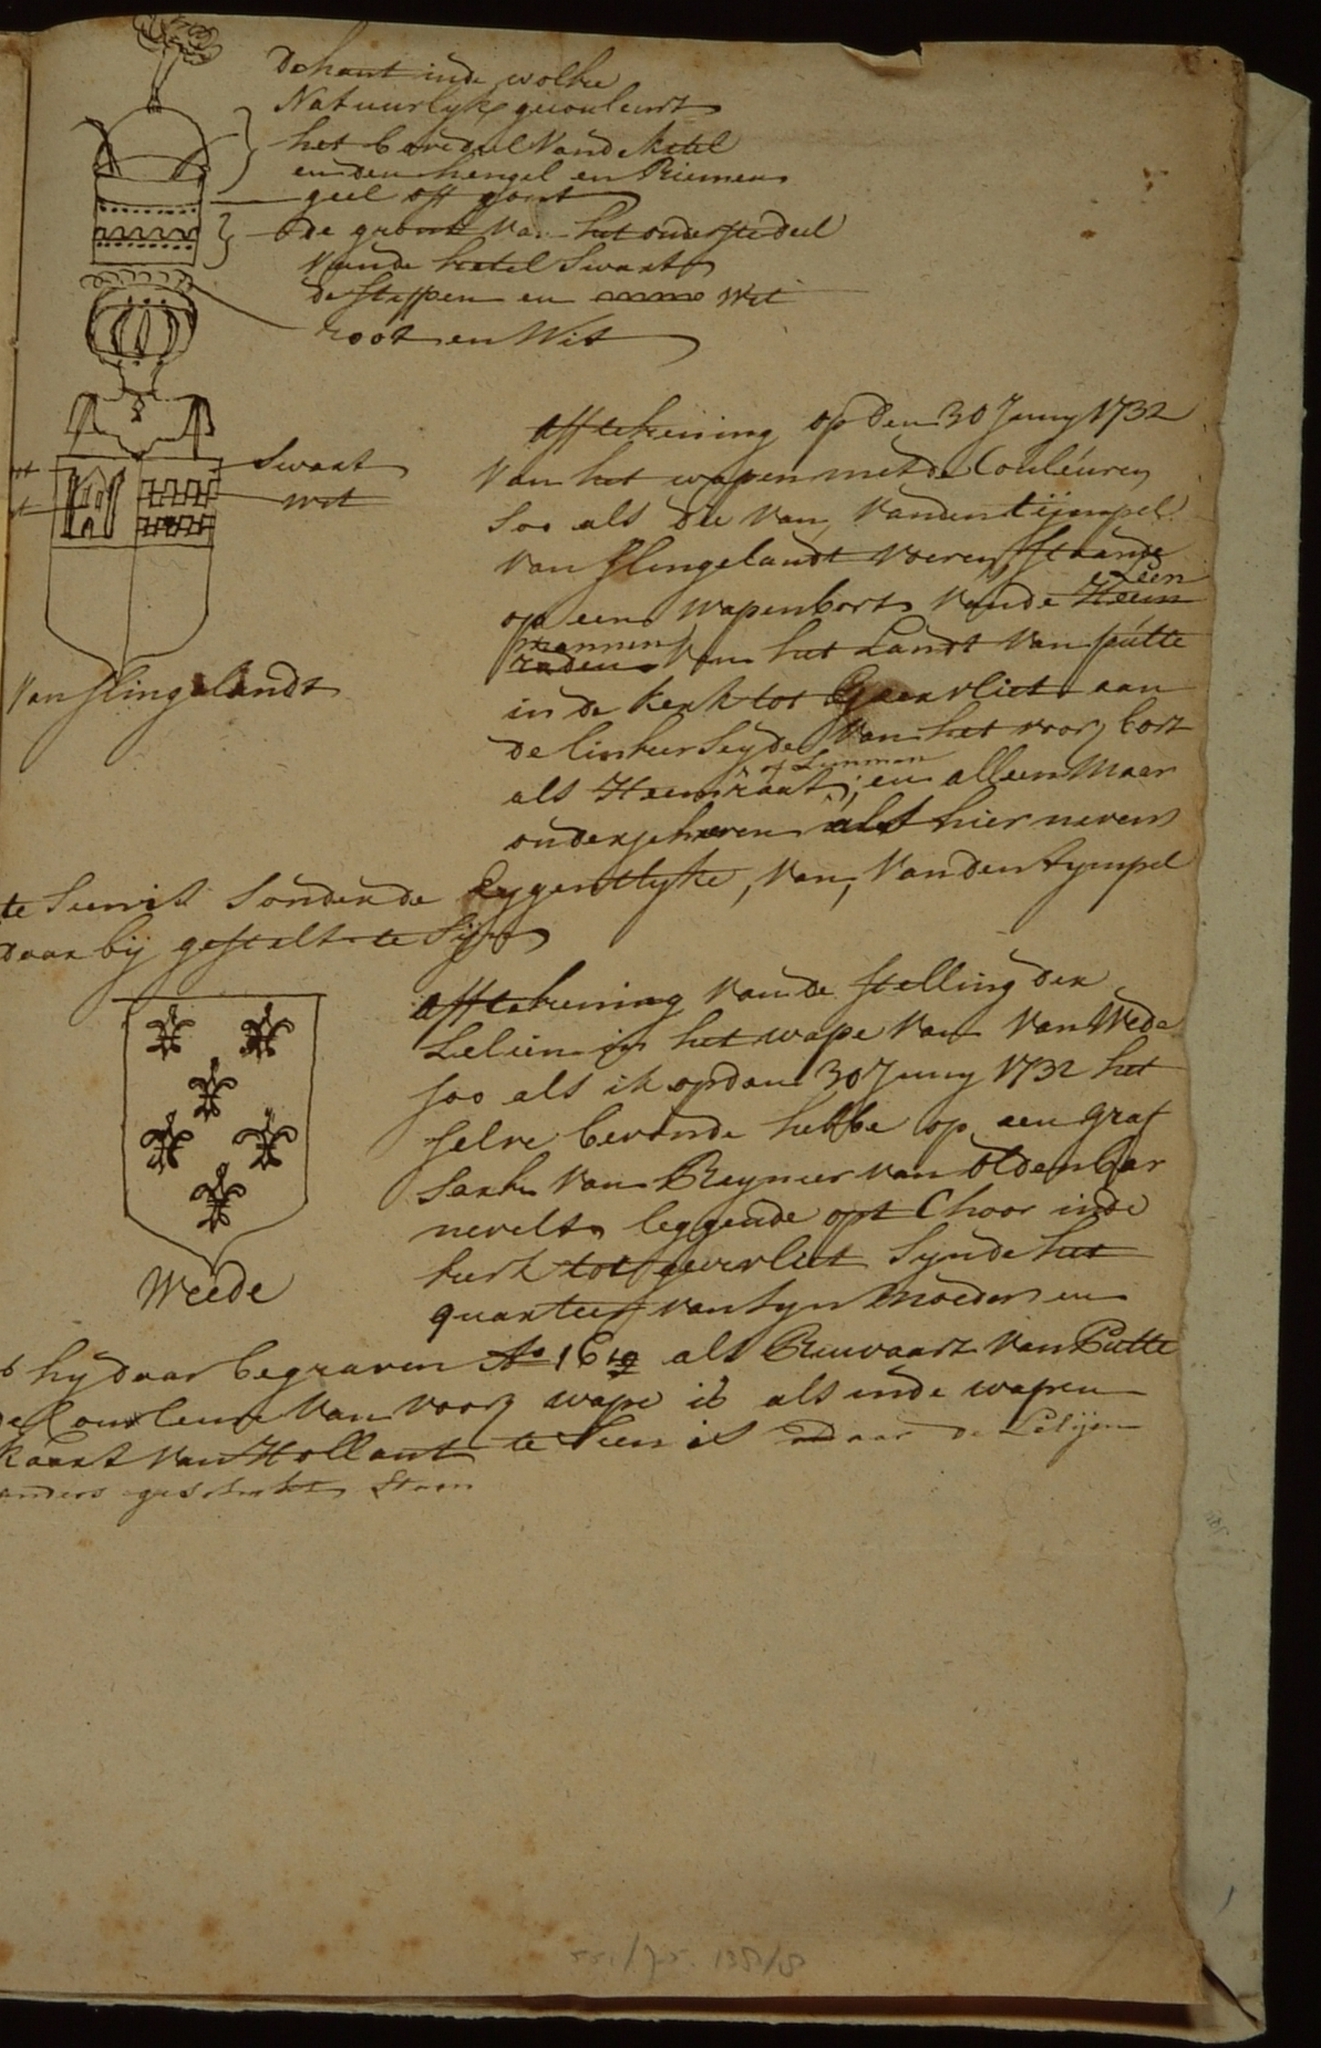 De hant inde wolke
Natuurlyk gecouleurt
het bovedeel Vande ketel
en den hengel en Riemen
geel off gout
de gront Van het onderste deel
Vande ketel Swart
de stippen en wit
root en Wit
Swart
wit
afftekening op den 30 Juny 1732
Van het wapen met de Couleuren
Soo als die Van, Vanden tijmpel
Van Slingelandt voeren staande
op een wapenbort Vande Heem
Leen
mannen
raden Van het Landt Van putte
in de kerk tot Geervliet aan
de linker Seyde Van het voorz bort
als Heemraat, en alleen Maer
of Leenman
ondergeschreven als hier nevens
Van Slingelandt
te Sien is Sonder de Eygentlyke, Van, Vanden tympel
daar bij gestelt te Sijn
afftekening Vande stelling der
Lelien in het wape Van Van Wede
soo als ik op den 30 Juny 1732 het
selve bevonde hebbe op een graf
Sark Van Reynier van Oldenbar
nevelt leggende opt Choor inde
kerk tot geervliet Synde het
quartier van Syn Moeder en
Weede
hy daar begraven Ao 1619 als Ruwaart Van Putte
de Couleure Van voorz wape is als inde wapen
kaart Van Hollant te Sien is daar de Lelijen
anders geschikt Staan